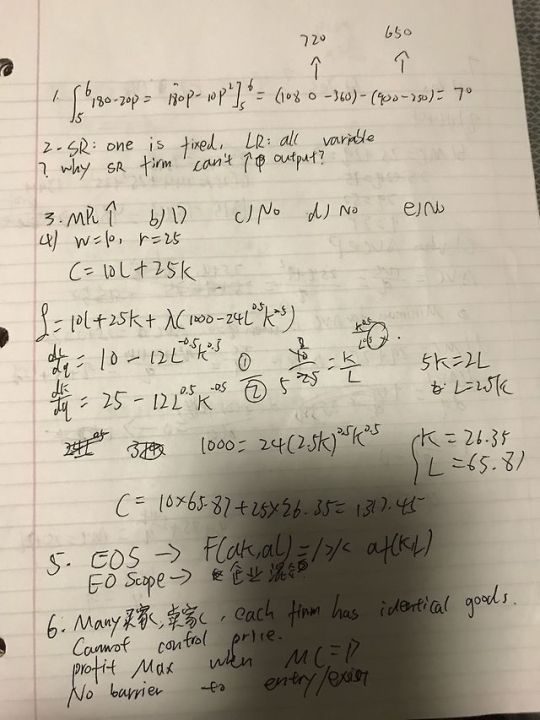 720 650
↑ ↑
1. ∫₅⁶ 180-20p = 180p-10p²]₅⁶ = (1080-360)-(900-250) = 70
2. SR: one is fixed, LR: all variable
? why SR firm can't ↑ output?
3. MPL ↑ b) 17 c) No d) No e) No
4) w=10, r=25
C=10L+25K
ℒ=10L+25K+λ(1000-24L^0.5K^0.5)
= 10-12L^-0.5K^0.5 ① 10/25 = K/L 5K=2L
= 25-12L^0.5K^-0.5 ② L=2.5K
1000=24(2.5K)^0.5K^0.5 {K=26.35
L=65.87
C=10×65.87+25×26.35=1317.45
5. EOS → F(aK,aL)=/>/< af(K,L)
EO Scope → 企业
6. Many 买家,卖家, each firm has identical goods.
Cannot control price.
profit Max when MC=P
No barrier to entry/exist